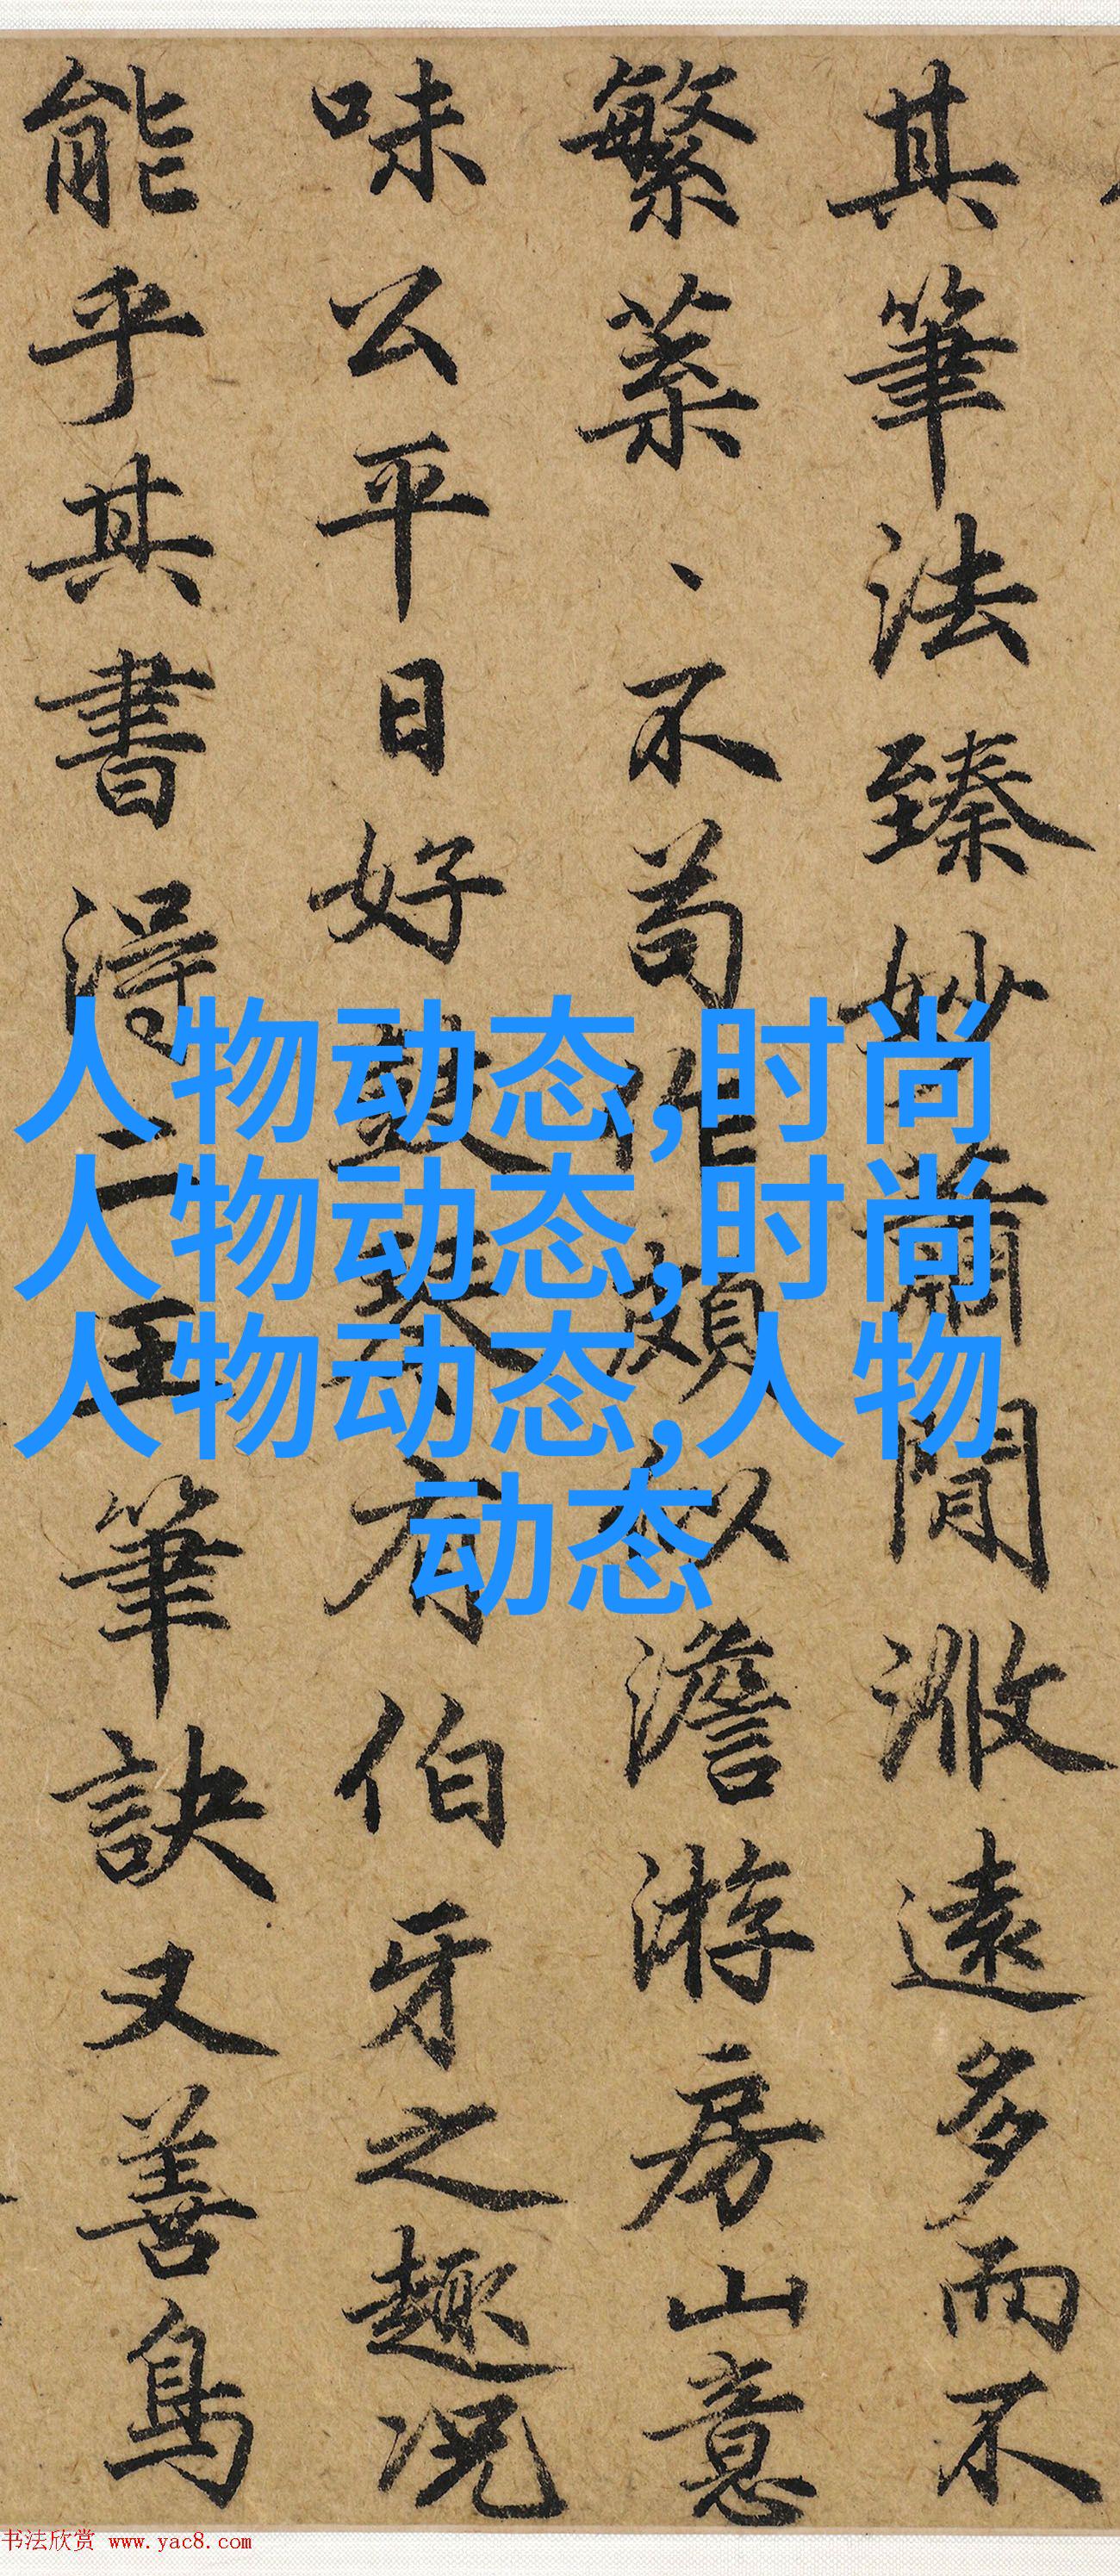 其筆法臻妙蕭閒㴑遠多而不
繁蕪、不苟作頗似澹游房山意
味公平日好鼓琴有伯牙之趣況
能乎其書得二王筆訣又善鳥
人物动态,时尚
人物动态,时尚
人物动态,人物
动态
书法欣赏 www.yac8.com